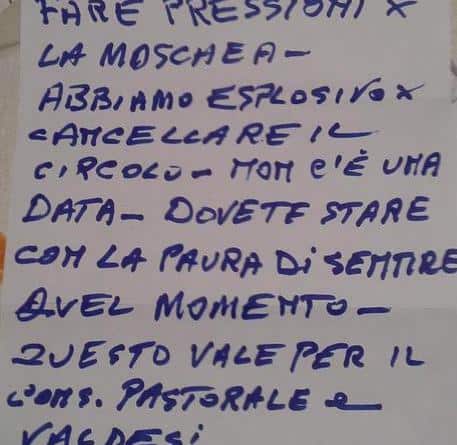 FARE PRESSIONI X
LA MOSCHEA-
ABBIAMO ESPLOSIVO X
CANCELLARE IL
CIRCOLO- NON C'È UNA
DATA- DOVETE STARE
CON LA PAURA Di SENTIRE
QUEL MOMENTO-
QUESTO VALE PER IL
CONS. PASTORALE e
VALDESi